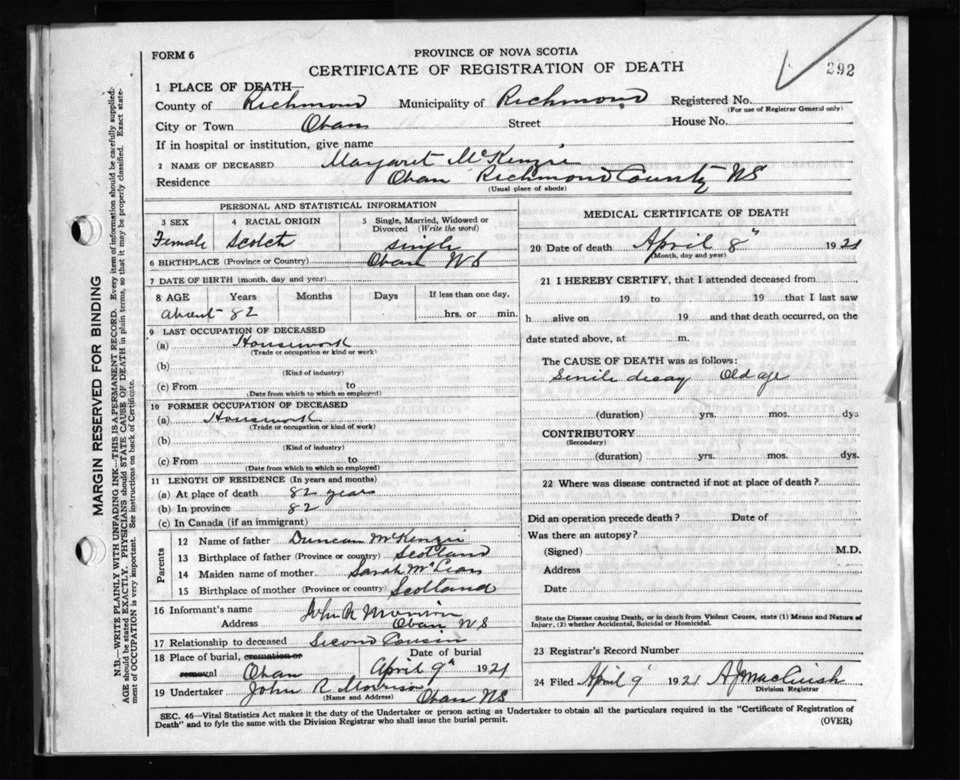 FORM 6
PROVINCE OF NOVA SCOTIA
CERTIFICATE OF REGISTRATION OF DEATH
292
1 PLACE OF DEATH—
County of Richmond Municipality of Richmond Registered No.
(For use of Registrar General only)
City or Town Oban Street House No.
If in hospital or institution, give name
2 NAME OF DECEASED Margaret McKenzie
Residence Oban Richmond County NS
(Usual place of abode)
PERSONAL AND STATISTICAL INFORMATION
3 SEX 4 RACIAL ORIGIN 5 Single, Married, Widowed or Divorced (Write the word)
Female Scotch single
6 BIRTHPLACE (Province or Country) Oban NS
7 DATE OF BIRTH (month, day and year)
8 AGE Years Months Days If less than one day,
about 82 hrs. or min.
9 LAST OCCUPATION OF DECEASED
(a) Housework
(Trade or occupation or kind or work)
(b)
(Kind of industry)
(c) From to
(Date from which to which so employed)
10 FORMER OCCUPATION OF DECEASED
(a) Housework
(Trade or occupation or kind of work)
(b)
(Kind of industry)
(c) From to
(Date from which to which so employed)
11 LENGTH OF RESIDENCE (In years and months)
(a) At place of death 82 years
(b) In province 82
(c) In Canada (if an immigrant)
Parents
12 Name of father Duncan McKenzie
13 Birthplace of father (Province or country) Scotland
14 Maiden name of mother Sarah McLean
15 Birthplace of mother (Province or country) Scotland
16 Informant's name John R Morrison
Address Oban NS
17 Relationship to deceased Second Cousin
18 Place of burial, cremation or removal Oban Date of burial April 9th 1921
19 Undertaker John R Morrison Oban NS
(Name and Address)
MEDICAL CERTIFICATE OF DEATH
20 Date of death April 8th 1921
(Month, day and year)
21 I HEREBY CERTIFY, that I attended deceased from
19 to 19 that I last saw
h alive on 19 and that death occurred, on the
date stated above, at m.
The CAUSE OF DEATH was as follows:
Senile decay Old age
(duration) yrs. mos. dys
CONTRIBUTORY
(Secondary)
(duration) yrs. mos. dys.
22 Where was disease contracted if not at place of death?
Did an operation precede death? Date of
Was there an autopsy?
(Signed) M.D.
Address
Date
State the Disease causing Death, or in death from Violent Causes, state (1) Means and Nature of
Injury, (2) whether Accidental, Suicidal or Homicidal.
23 Registrar's Record Number
24 Filed April 9 1921 A J MacCuish
Division Registrar
SEC. 46—Vital Statistics Act makes it the duty of the Undertaker or person acting as Undertaker to obtain all the particulars required in the "Certificate of Registration of
Death" and to fyle the same with the Division Registrar who shall issue the burial permit. (OVER)
MARGIN RESERVED FOR BINDING
N.B.—WRITE PLAINLY WITH UNFADING INK—THIS IS A PERMANENT RECORD. Every item of information should be carefully supplied.
AGE should be stated EXACTLY. PHYSICIANS should STATE CAUSE OF DEATH in plain terms, so that it may be properly classified. Exact statement
of OCCUPATION is very important. See instructions on back of Certificate.